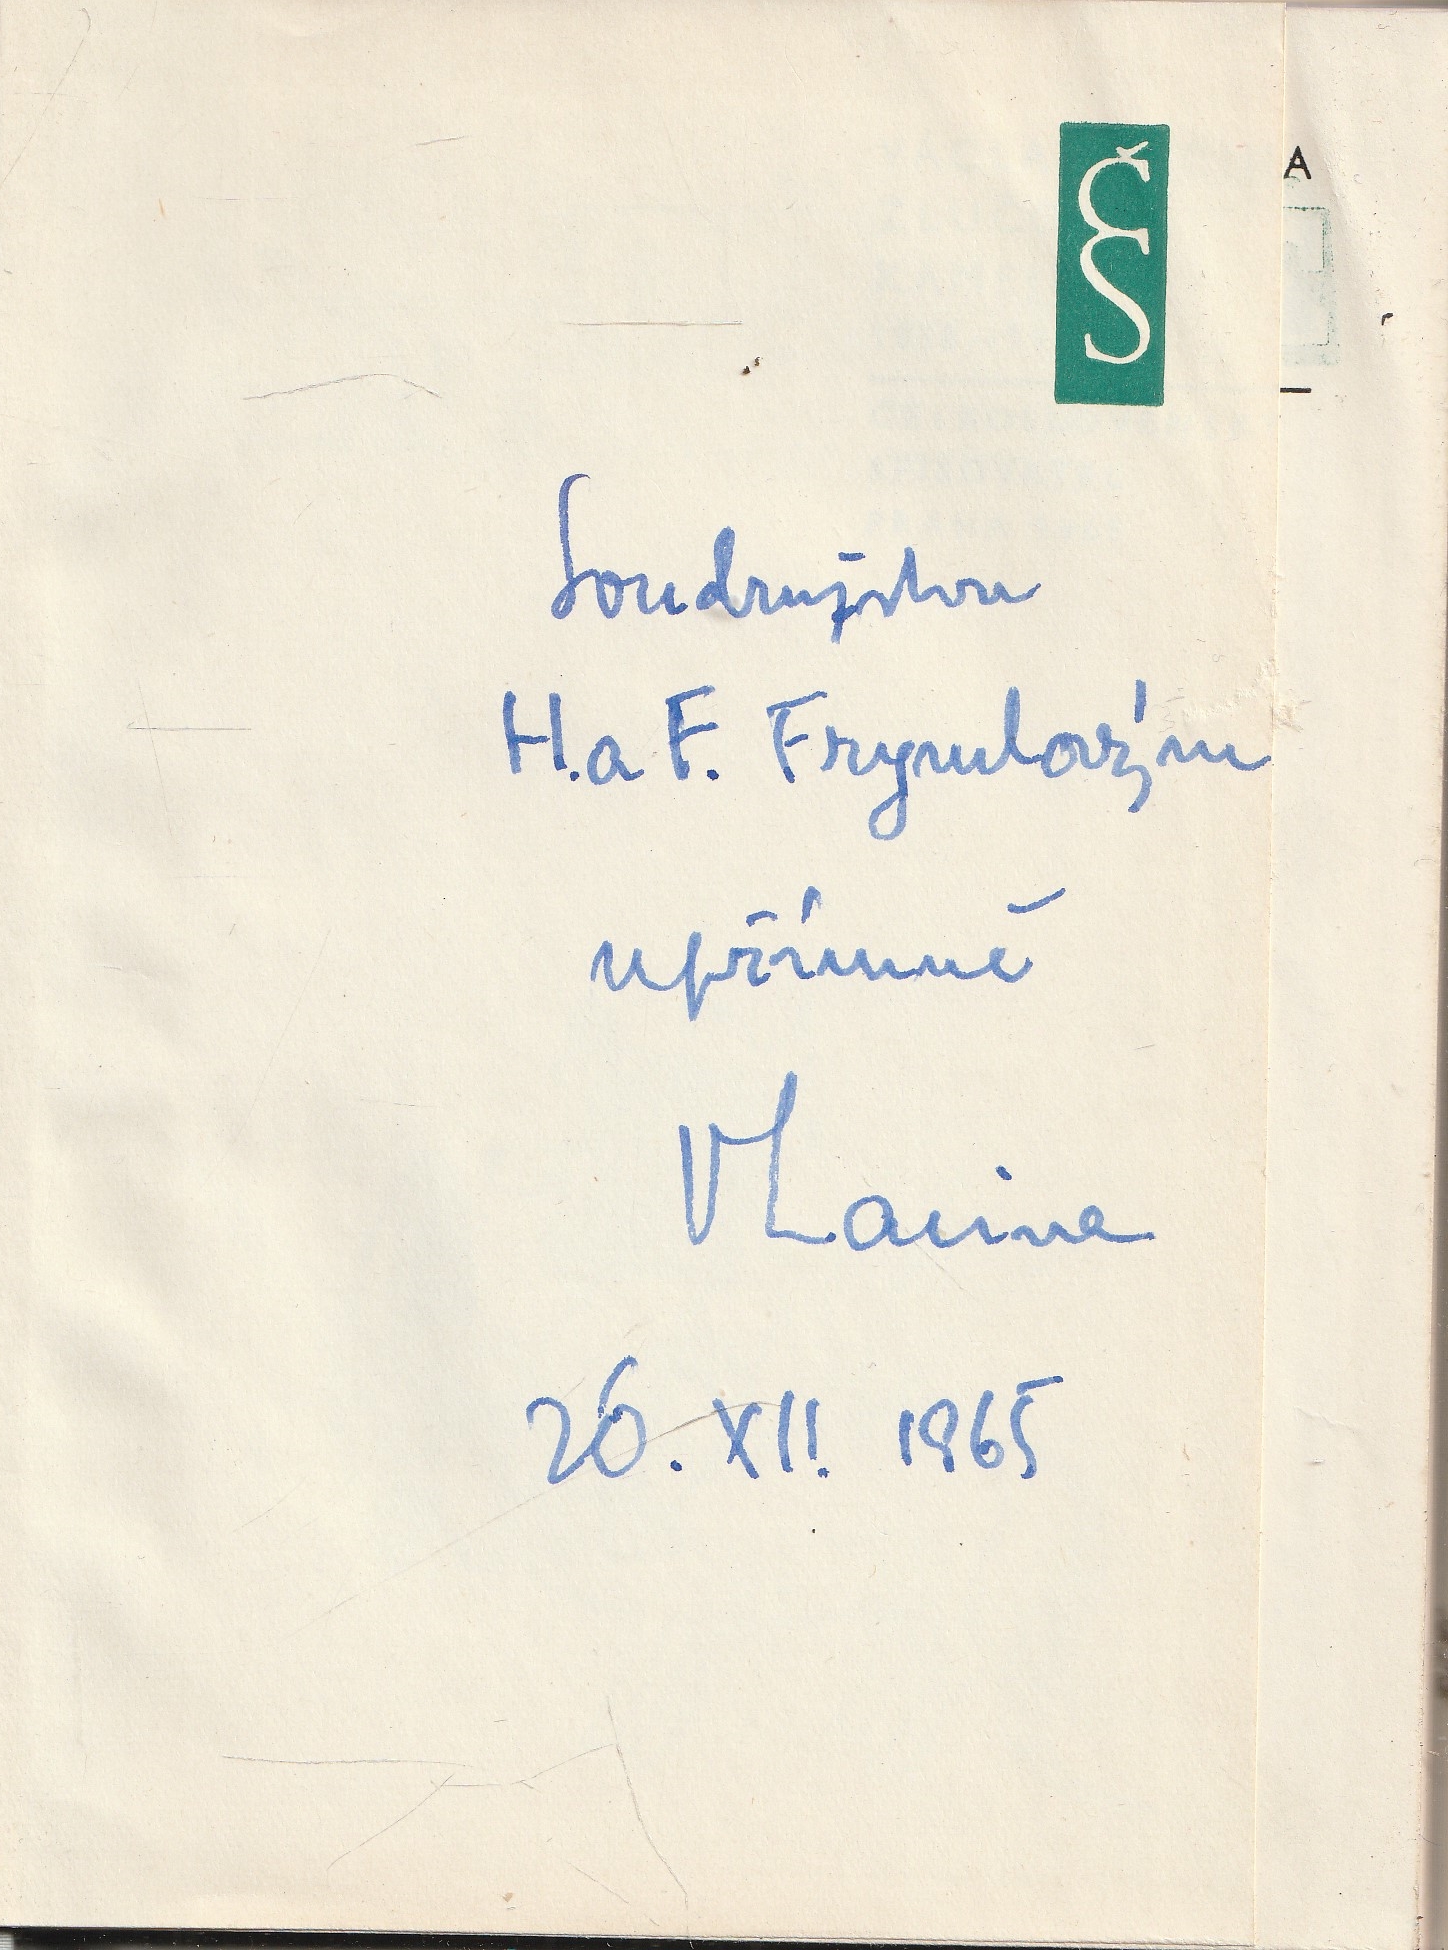 ČS
A
Soudružstvu
H. a F. Frymlovým
upřímně
VLacina
26. XII. 1965